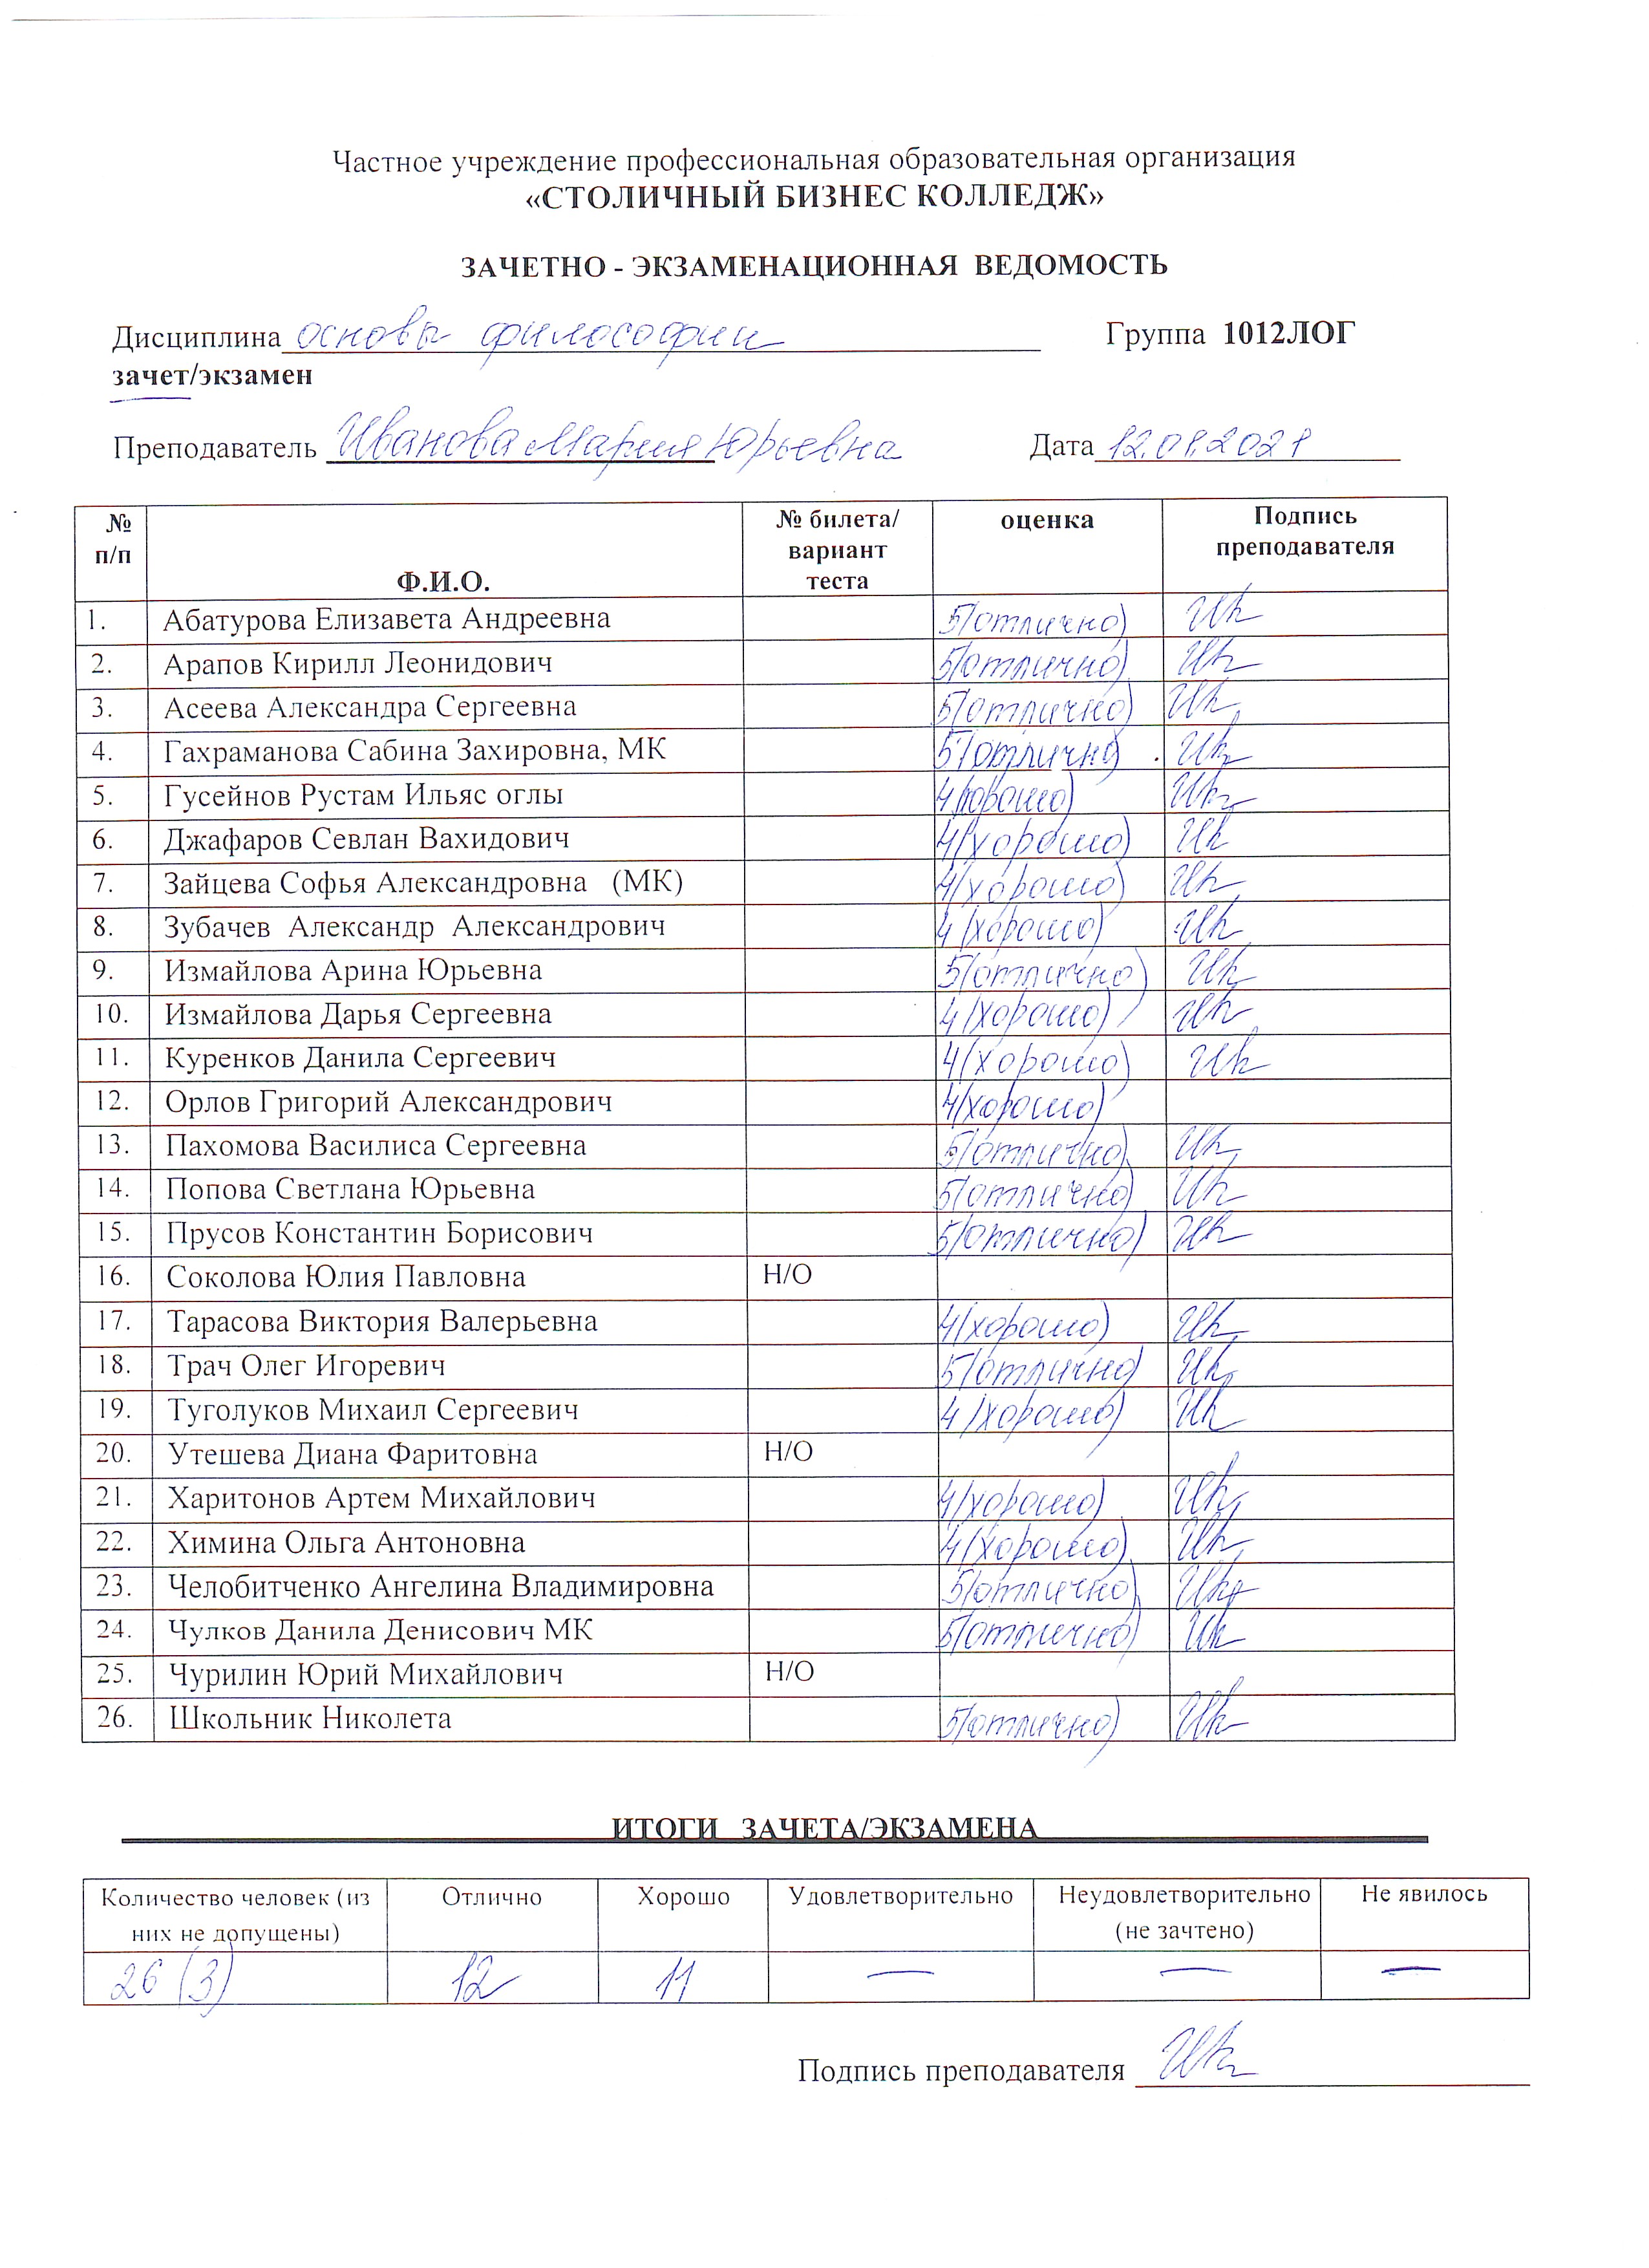 Частное учреждение профессиональная образовательная организация
«СТОЛИЧНЫЙ БИЗНЕС КОЛЛЕДЖ»
ЗАЧЕТНО - ЭКЗАМЕНАЦИОННАЯ ВЕДОМОСТЬ
Дисциплина основы философии Группа 1012ЛОГ
зачет/экзамен
Преподаватель Иванова Мария Юрьевна Дата 12.01.2021
№ п/п Ф.И.О. № билета/ вариант теста оценка Подпись преподавателя
1. Абатурова Елизавета Андреевна 5(отлично)
2. Арапов Кирилл Леонидович 5(отлично)
3. Асеева Александра Сергеевна 5(отлично)
4. Гахраманова Сабина Захировна, МК 5(отлично)
5. Гусейнов Рустам Ильяс оглы 4(хорошо)
6. Джафаров Севлан Вахидович 4(хорошо)
7. Зайцева Софья Александровна (МК) 4(хорошо)
8. Зубачев Александр Александрович 4(хорошо)
9. Измайлова Арина Юрьевна 5(отлично)
10. Измайлова Дарья Сергеевна 4(хорошо)
11. Куренков Данила Сергеевич 4(хорошо)
12. Орлов Григорий Александрович 4(хорошо)
13. Пахомова Василиса Сергеевна 5(отлично)
14. Попова Светлана Юрьевна 5(отлично)
15. Прусов Константин Борисович 5(отлично)
16. Соколова Юлия Павловна Н/О
17. Тарасова Виктория Валерьевна 4(хорошо)
18. Трач Олег Игоревич 5(отлично)
19. Туголуков Михаил Сергеевич 4(хорошо)
20. Утешева Диана Фаритовна Н/О
21. Харитонов Артем Михайлович 4(хорошо)
22. Химина Ольга Антоновна 4(хорошо)
23. Челобитченко Ангелина Владимировна 5(отлично)
24. Чулков Данила Денисович МК 5(отлично)
25. Чурилин Юрий Михайлович Н/О
26. Школьник Николета 5(отлично)
ИТОГИ ЗАЧЕТА/ЭКЗАМЕНА
Количество человек (из них не допущены) Отлично Хорошо Удовлетворительно Неудовлетворительно (не зачтено) Не явилось
26 (3) 12 11 — — —
Подпись преподавателя